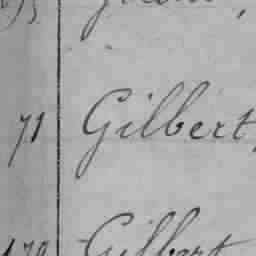 71 Gilbert,
172 Gilbert